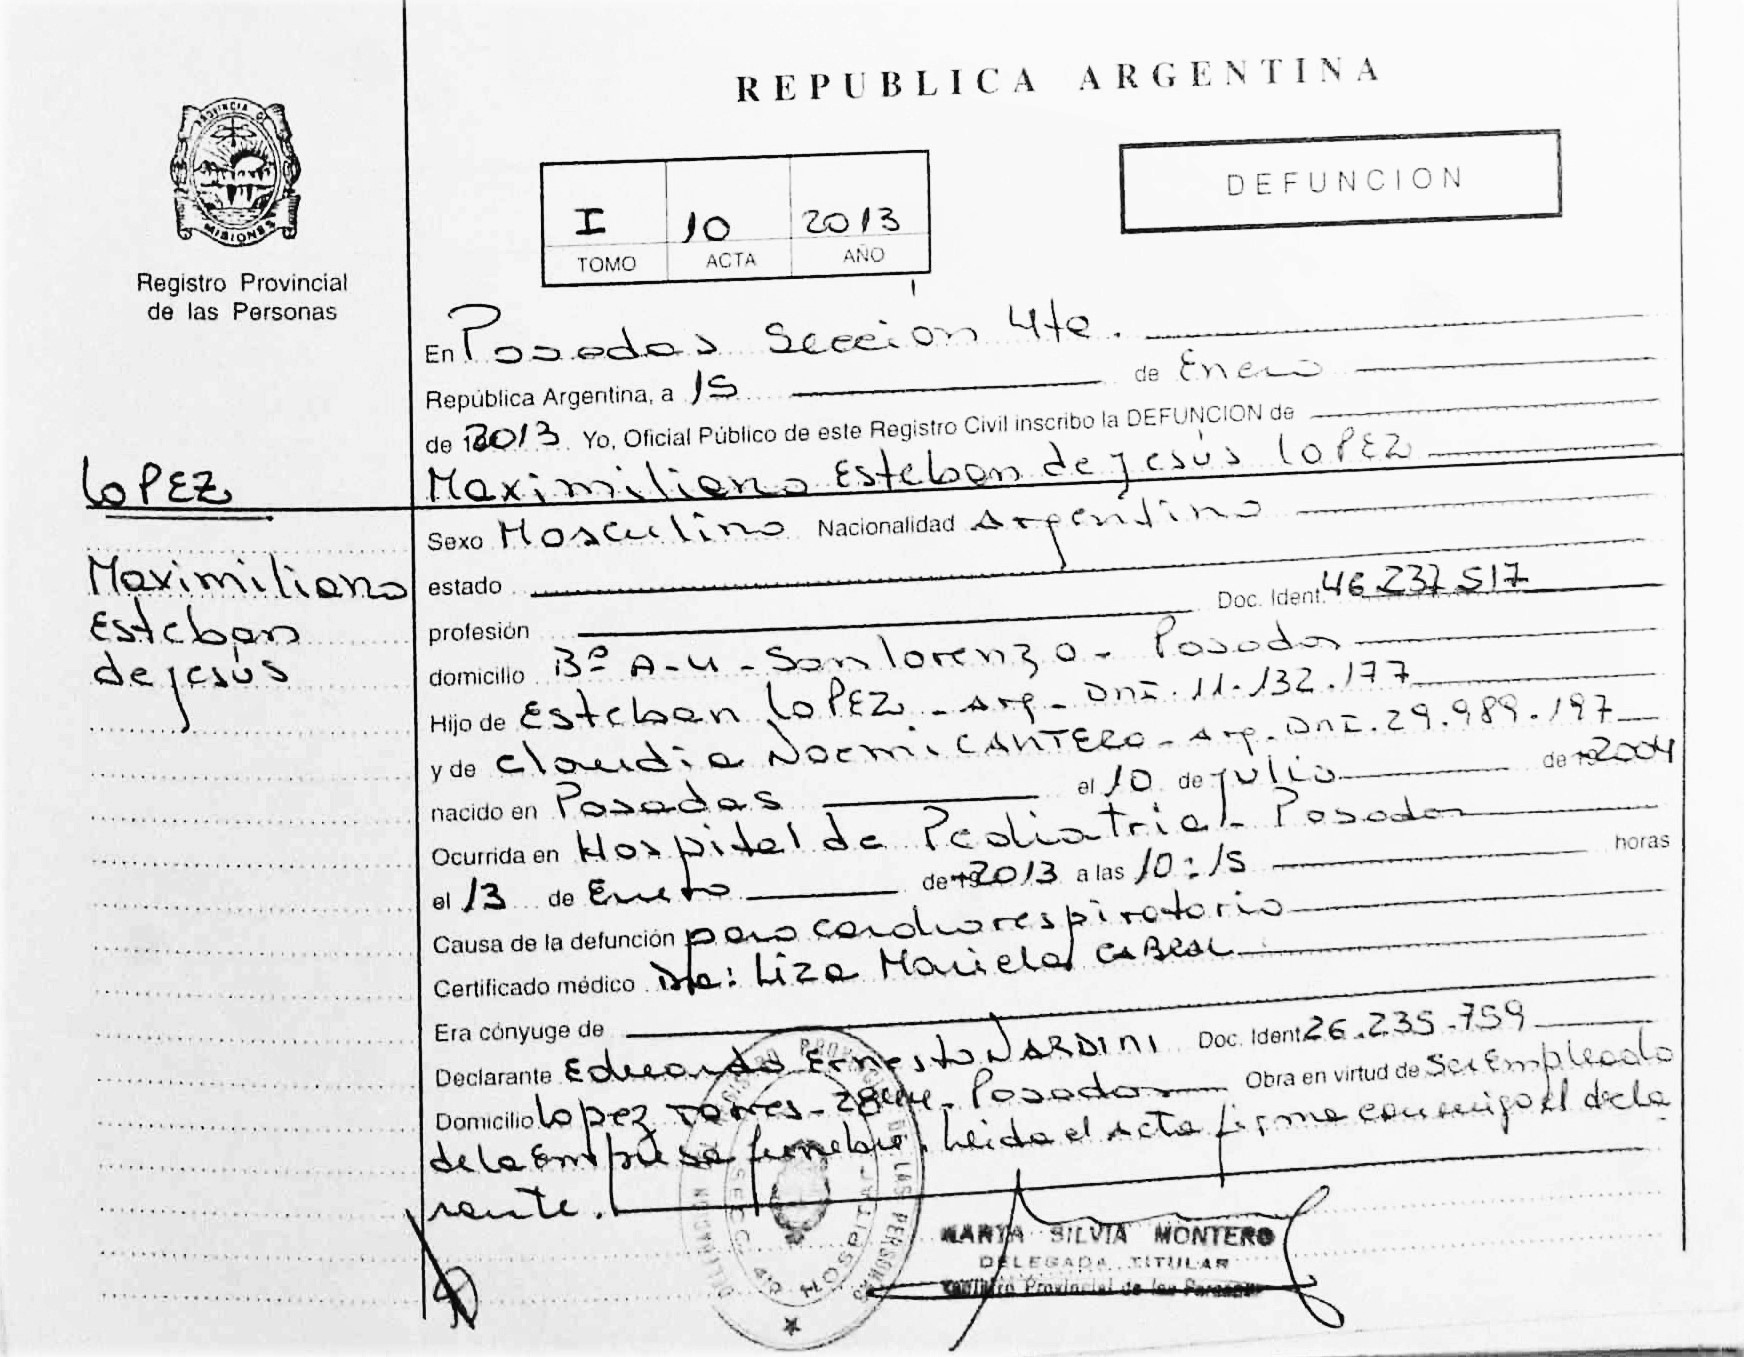 REPUBLICA ARGENTINA
PROVINCIA DE
MISIONES
Registro Provincial
de las Personas
DEFUNCION
I 10 2013
TOMO ACTA AÑO
En Posadas Sección 4ta.
República Argentina, a 15 de Enero
de 2013. Yo, Oficial Público de este Registro Civil inscribo la DEFUNCION de
Maximiliano Esteban de Jesús LOPEZ
LOPEZ
Maximiliano
Esteban
de Jesús
Sexo Masculino Nacionalidad Argentino
estado
profesión Doc. Ident. 46.237.517
domicilio Bº A-4 - San Lorenzo - Posadas
Hijo de Esteban LOPEZ - Arg - DNI. 11.132.177
y de Claudia Noemi CANTERO - Arg. DNI. 29.989.197
nacido en Posadas el 10 de Julio de 2004
Ocurrida en Hospital de Pediatria - Posadas
el 13 de Enero de 2013 a las 10:15 horas
Causa de la defunción paro cardiorespiratorio
Certificado médico Dra: Liza Mariela CABRAL
Era cónyuge de
Declarante Eduardo Ernesto NARDINI Doc. Ident. 26.235.759
Domicilio Lopez Torres - 2844 - Posadas Obra en virtud de Ser Empleado
de la Empresa funebre, leida el acta firma conmigo el decla
rante.
MARTA SILVIA MONTERO
DELEGADA TITULAR
Registro Provincial de las Personas
LAS PERSONAS
SECC. 4ta
HOSPITAL